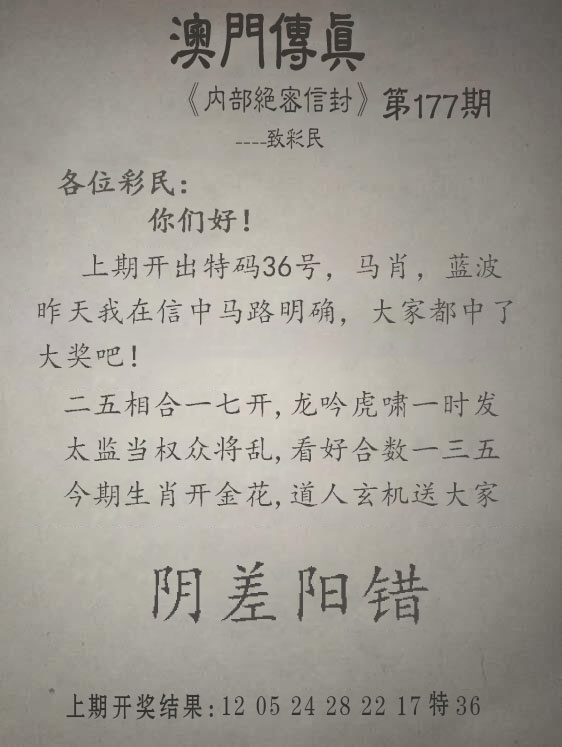 澳門傳眞
《内部絕密信封》第177期
----致彩民
各位彩民：
你们好！
上期开出特码36号，马肖，蓝波
昨天我在信中马路明确，大家都中了
大奖吧！
二五相合一七开,龙吟虎啸一时发
太监当权众将乱,看好合数一三五
今期生肖开金花,道人玄机送大家
阴差阳错
上期开奖结果:12 05 24 28 22 17特36